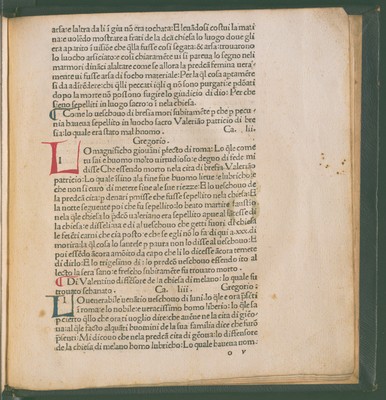 arsa:e laltra da li ĩ giu nõ era tochata: E leuãdosi costui la mati
na:e uolẽdo mostrare a frati de la decta chiesa lo luogo doue gli
era aparito ĩ uisiõe che q̃lla fusse cosi segata: & arsa:trouarono
lo luocho arsiciato:e coli chiaramẽte ui si parea lo segno neli
marmori dinãci alaltare come se allora la predecta femina uera/
mente ui fusse arsa di focho materiale: Per la q̃l cosa aptamẽte
si da adĩtẽdere:che q̃lli peccati
dopo la morte nõ possono fugire lo giudicio di dio: Per che
seno sepelliti in luogo sacro: nela chiesa.
Como lo uescouo di bresa mori subitamẽte p che p pecu/
nia hauena sepelito in luocho sacro Valeriáo patricio di bre
sia:lo quale era stato mal homo. Ca. liii.
Gregorio.
LO magnifico giouãni plecto di roma: Lo q̃le come
tu sai e huomo molto uirtudioso:e degno di fede mi
disse Che essendo morto nela cita di bresia Valeriáo
patricio: Lo quale ĩsino ala fine fue huomo lieue:e lubricho:e
che non si curo di metere fine ale sue riezze: E lo uescouo de
la predecta cita:p denari pmisse che fusse sepellito nela chiesa: E
la notte seguente poi che fu sepellito:lo beato martire faustio
nela q̃le chiesa lo pdcõ ualeriano era sepelito
la chiesa:e
le fectẽti carni che cia posto:e che se egli nõ lo fa di qui a.xxx.di
morira:la q̃l cosa lo santese p paura non lo disse al uescouo: E
poi essẽdo ãcora amõito da capo che li lo dicesse ãcora temete
di dirlo: E lo trigesimo di: lo predcõ uescouo essendo ito al
lecto la sera sano e frescho subitamẽte fu trouato morto.
Di Valentino diffẽsore de la chiesa di melano: lo quale fu
trouato Ca. liii Gregorio:
LO uenerabile uenãtio uescouo di luni:lo q̃le e ora pñti
ĩ roma:e lo nobile:e ueracissimo homo liberia:lo q̃le sa
p certo q̃llo che ora ti uoglio dire:che anẽne ne la cita di gẽo/
ua:al q̃le facto alquãti huomini de la sua familia dire che furõ
pñenti: Mi dicono che nela predecta cita di gẽoua:lo difensore
de la chiesa di melano homo lubricho: Lo quale hauena nom.
o v